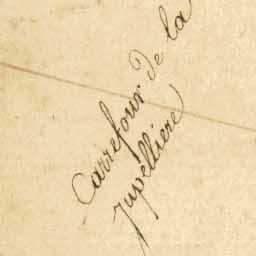 Carrefour De la
Jupelliere